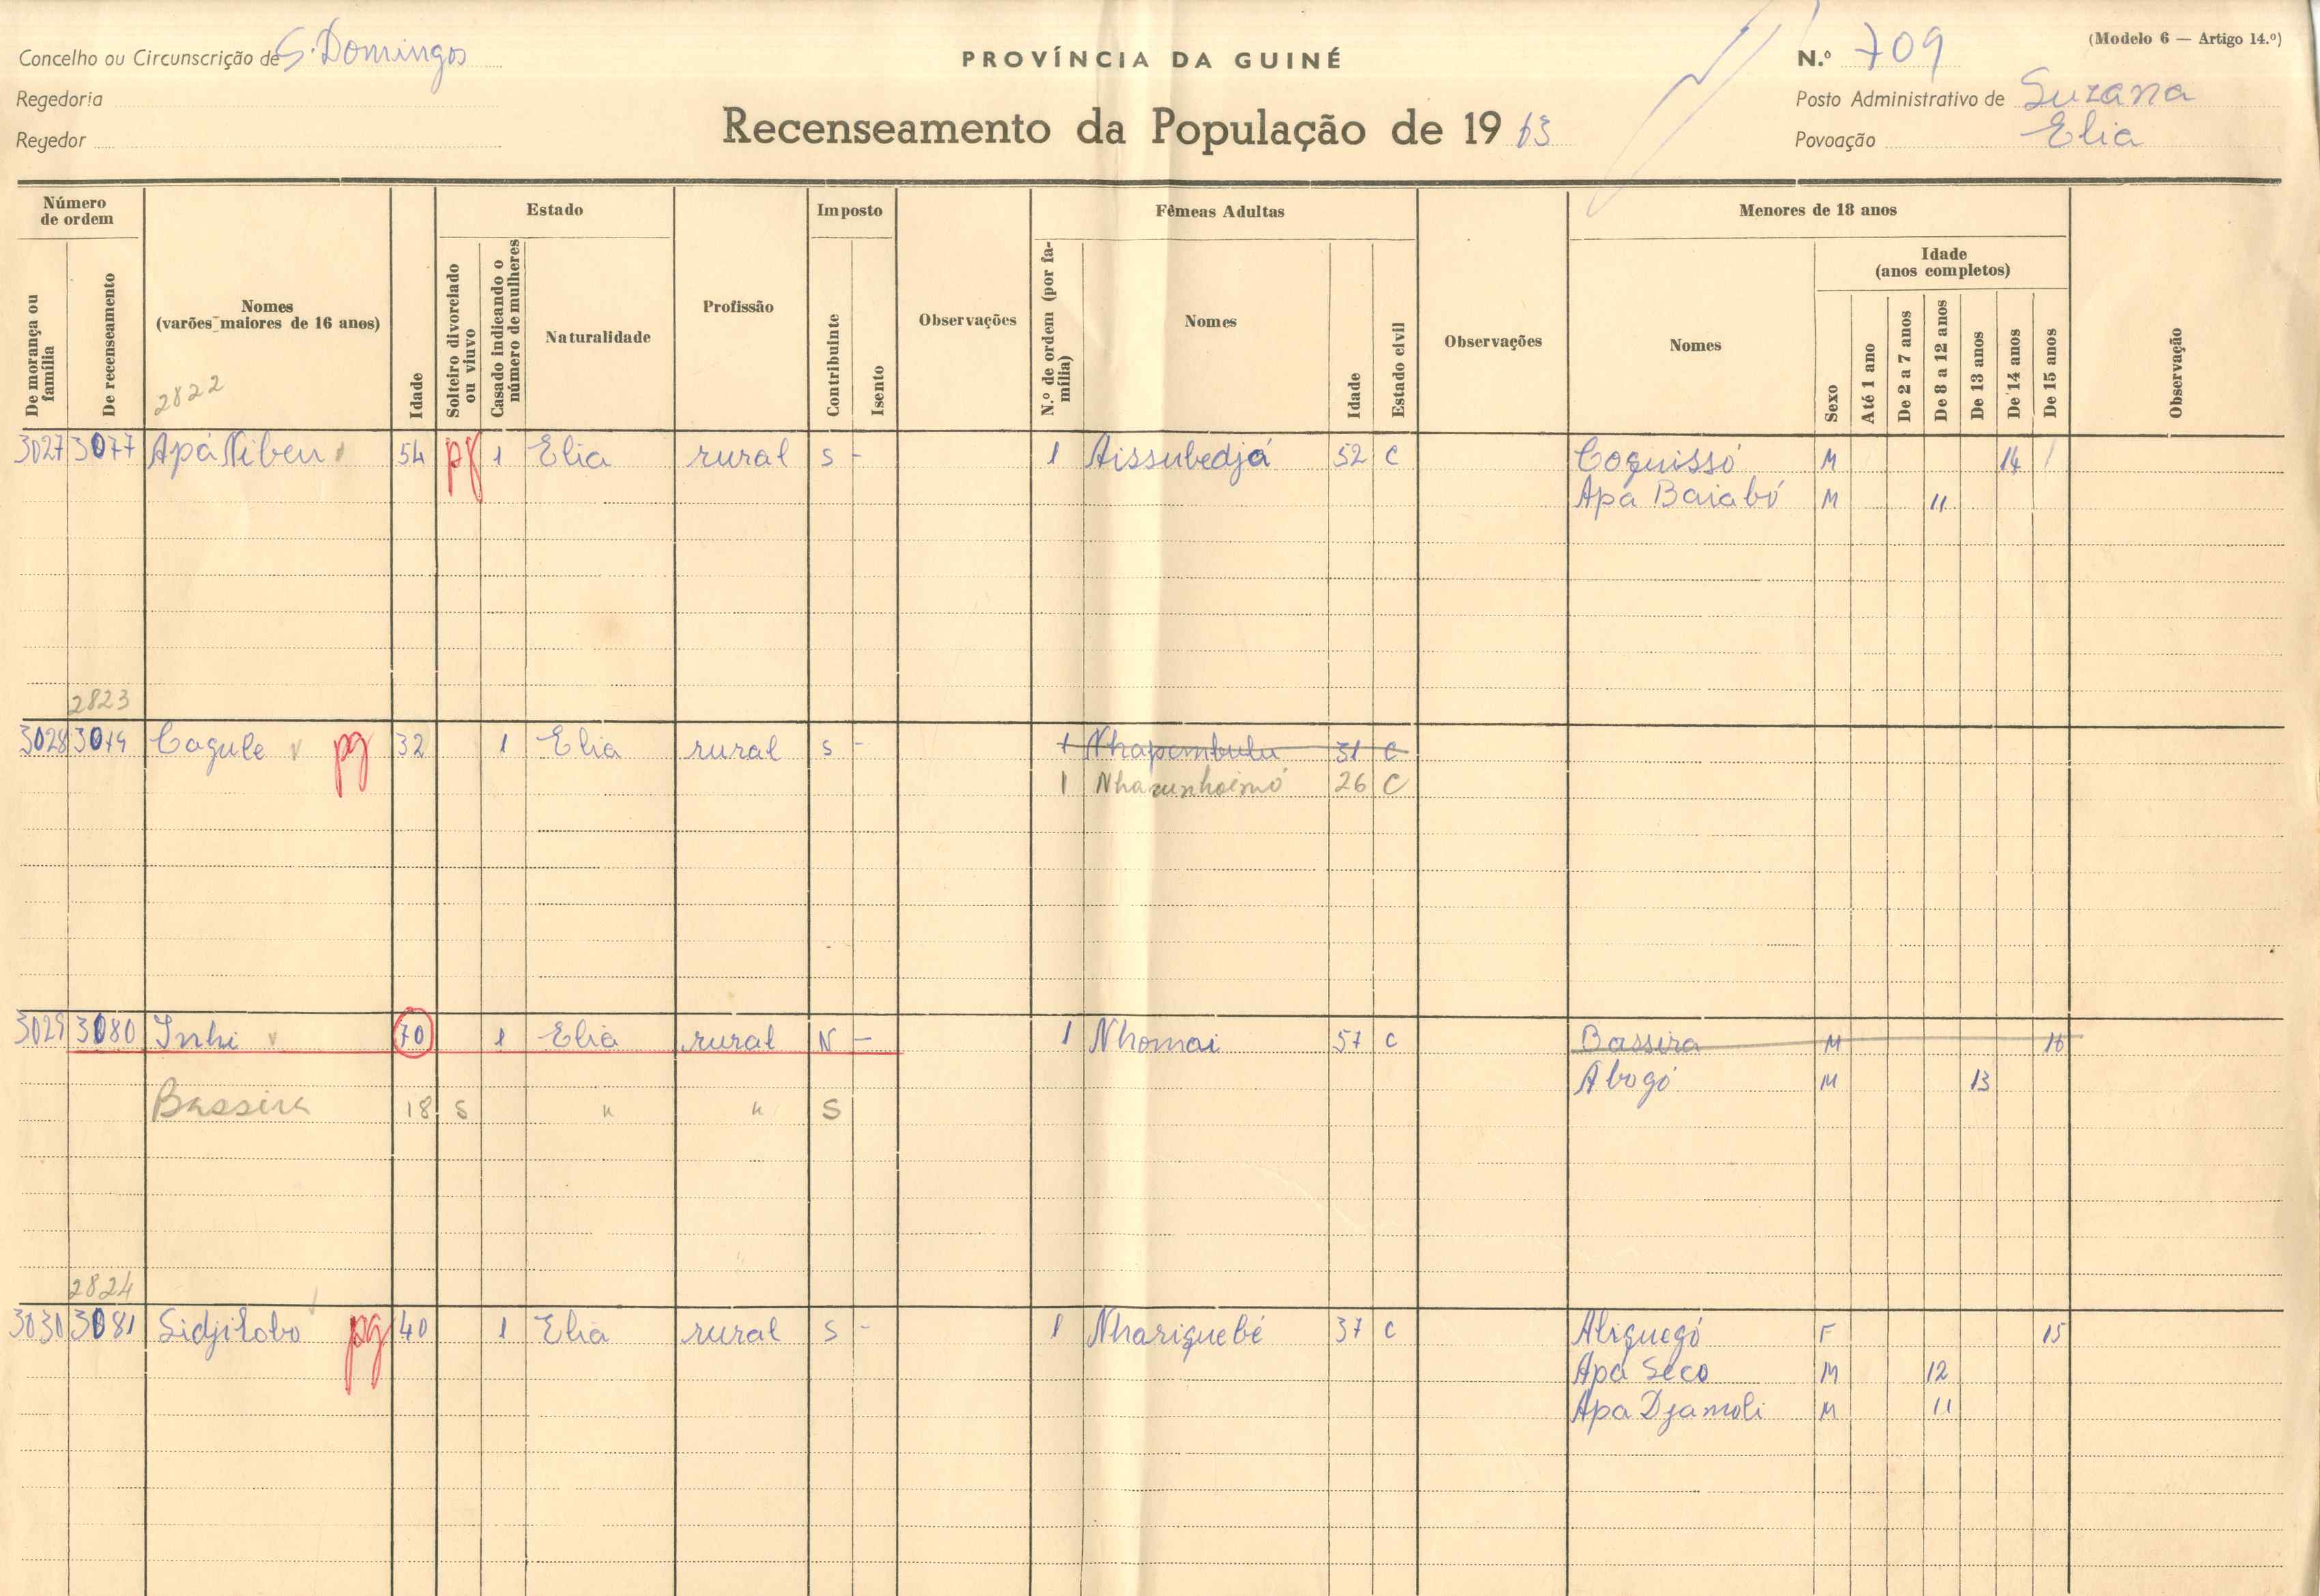 Concelho ou Circunscrição de S. Domingos
PROVÍNCIA DA GUINÉ
N.º 709
(Modelo 6 — Artigo 14.º)
Regedoria
Posto Administrativo de Suzana
Regedor
Recenseamento da População de 1963
Povoação Elia
Número de ordem
Estado
Imposto
Fêmeas Adultas
Menores de 18 anos
De morança ou família
De recenseamento
Nomes (varões maiores de 16 anos)
Idade
Solteiro divorciado ou viuvo
Casado indicando o número de mulheres
Naturalidade
Profissão
Contribuinte
Isento
Observações
N.º de ordem (por família)
Nomes
Idade
Estado civil
Observações
Nomes
Sexo
Idade (anos completos)
Até 1 ano
De 2 a 7 anos
De 8 a 12 anos
De 13 anos
De 14 anos
De 15 anos
Observação
2822
3027 3077 Apá Niben 54 pg 1 Elia rural S - 1 Aissubedjá 52 C Coquissó M 14
Apa Baiabó M 11
2823
3028 3079 Cagule pg 32 1 Elia rural S - 1 Nhapombulu 31 C
1 26 C
3029 3080 Inhi 70 1 Elia rural N - 1 Nhomai 57 C Bassira M 16
Abogó M 13
Bassira 18 S " " S
2824
3030 3081 Sidjilobo pg 40 1 Elia rural S - 1 Nhariquebé 37 C Aliquegó F 15
Apa Seco M 12
Apa Djamoli M 11